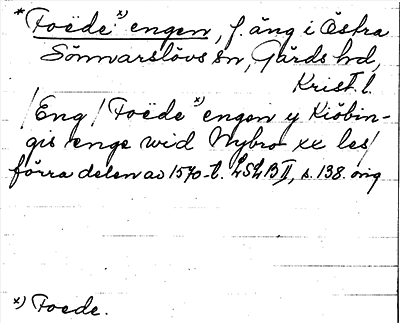 * Foëde ˣ⁾ engen, f. äng i Östra
Sönnarslövs sn, Gärds hd,
Krist. l.
/Eng/ Foëde ˣ⁾ engen y Kiöbin-
gis enge wid Nybro xx les/
förra delen av 1570-t. LSLB II, s. 138. orig
x) Foede.